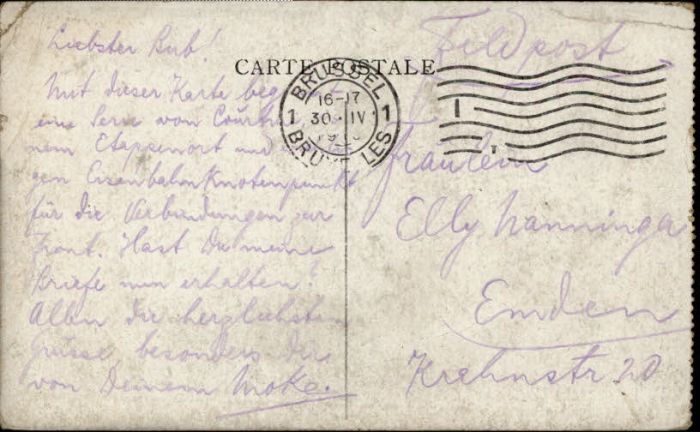 Liebster Bub!
CARTE POSTALE
Feldpost
BRUSSEL
1 16-17 1
30 IV
BRUXELLES
Mit dieser Karte beg
eine Serie von
nem Etappenort und
gen Eisenbahnknotenpunkt
für die Verbindungen zur
Front. Hast Du meine
Briefe nun erhalten?
Allen die herzlichsten
Grüsse, besonders Dir
von Deinem Moke.
Fräulein
Elly Nanninga
Emden
Krehnstr 20